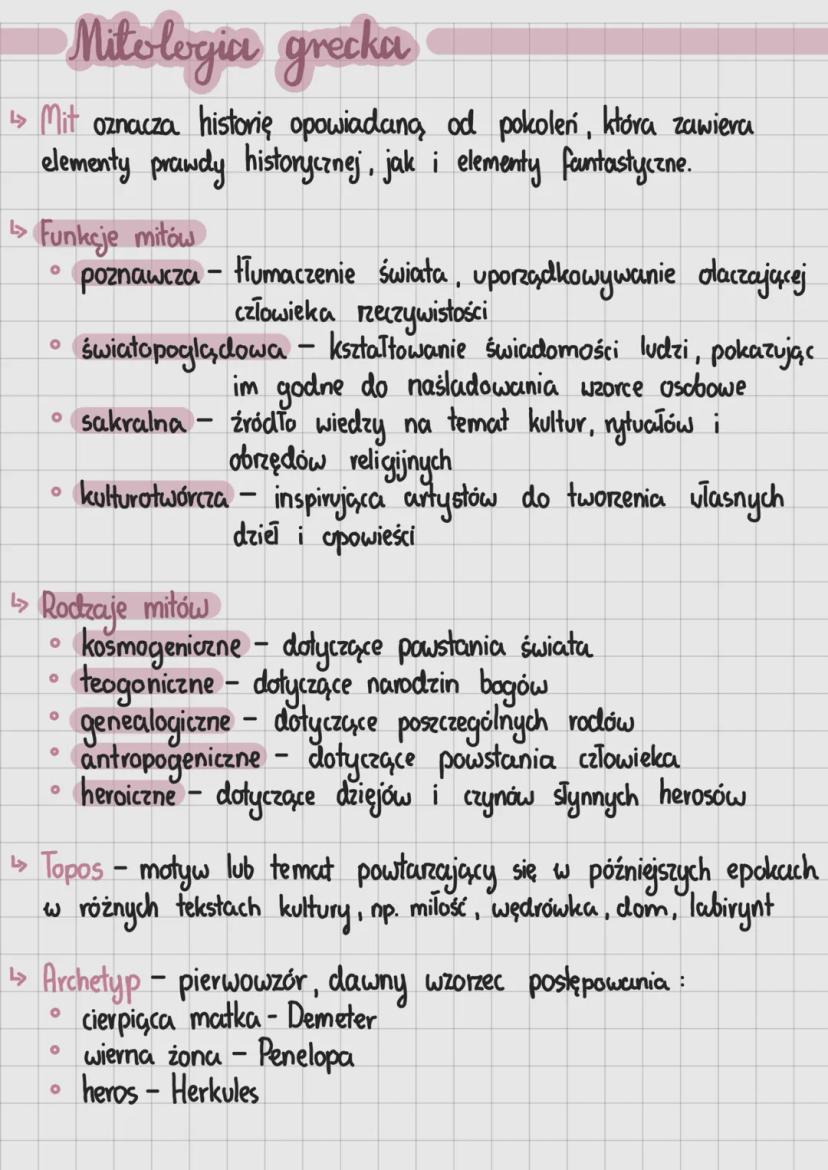 Mitologia grecka
↳ Mit oznacza historię opowiadaną od pokoleń, która zawiera
elementy prawdy historycznej, jak i elementy fantastyczne.
↳ Funkcje mitów
° poznawcza – tłumaczenie świata, uporządkowywanie otaczającej
człowieka rzeczywistości
° światopoglądowa – kształtowanie świadomości ludzi, pokazując
im godne do naśladowania wzorce osobowe
° sakralna – źródło wiedzy na temat kultur, rytuałów i
obrzędów religijnych
° kulturotwórcza – inspirująca artystów do tworzenia własnych
dzieł i opowieści
↳ Rodzaje mitów
° kosmogeniczne – dotyczące powstania świata
° teogoniczne – dotyczące narodzin bogów
° genealogiczne – dotyczące poszczególnych rodów
° antropogeniczne – dotyczące powstania człowieka
° heroiczne – dotyczące dziejów i czynów słynnych herosów
↳ Topos – motyw lub temat powtarzający się w późniejszych epokach
w różnych tekstach kultury, np. miłość, wędrówka, dom, labirynt
↳ Archetyp – pierwowzór, dawny wzorzec postępowania:
° cierpiąca matka - Demeter
° wierna żona – Penelopa
° heros – Herkules